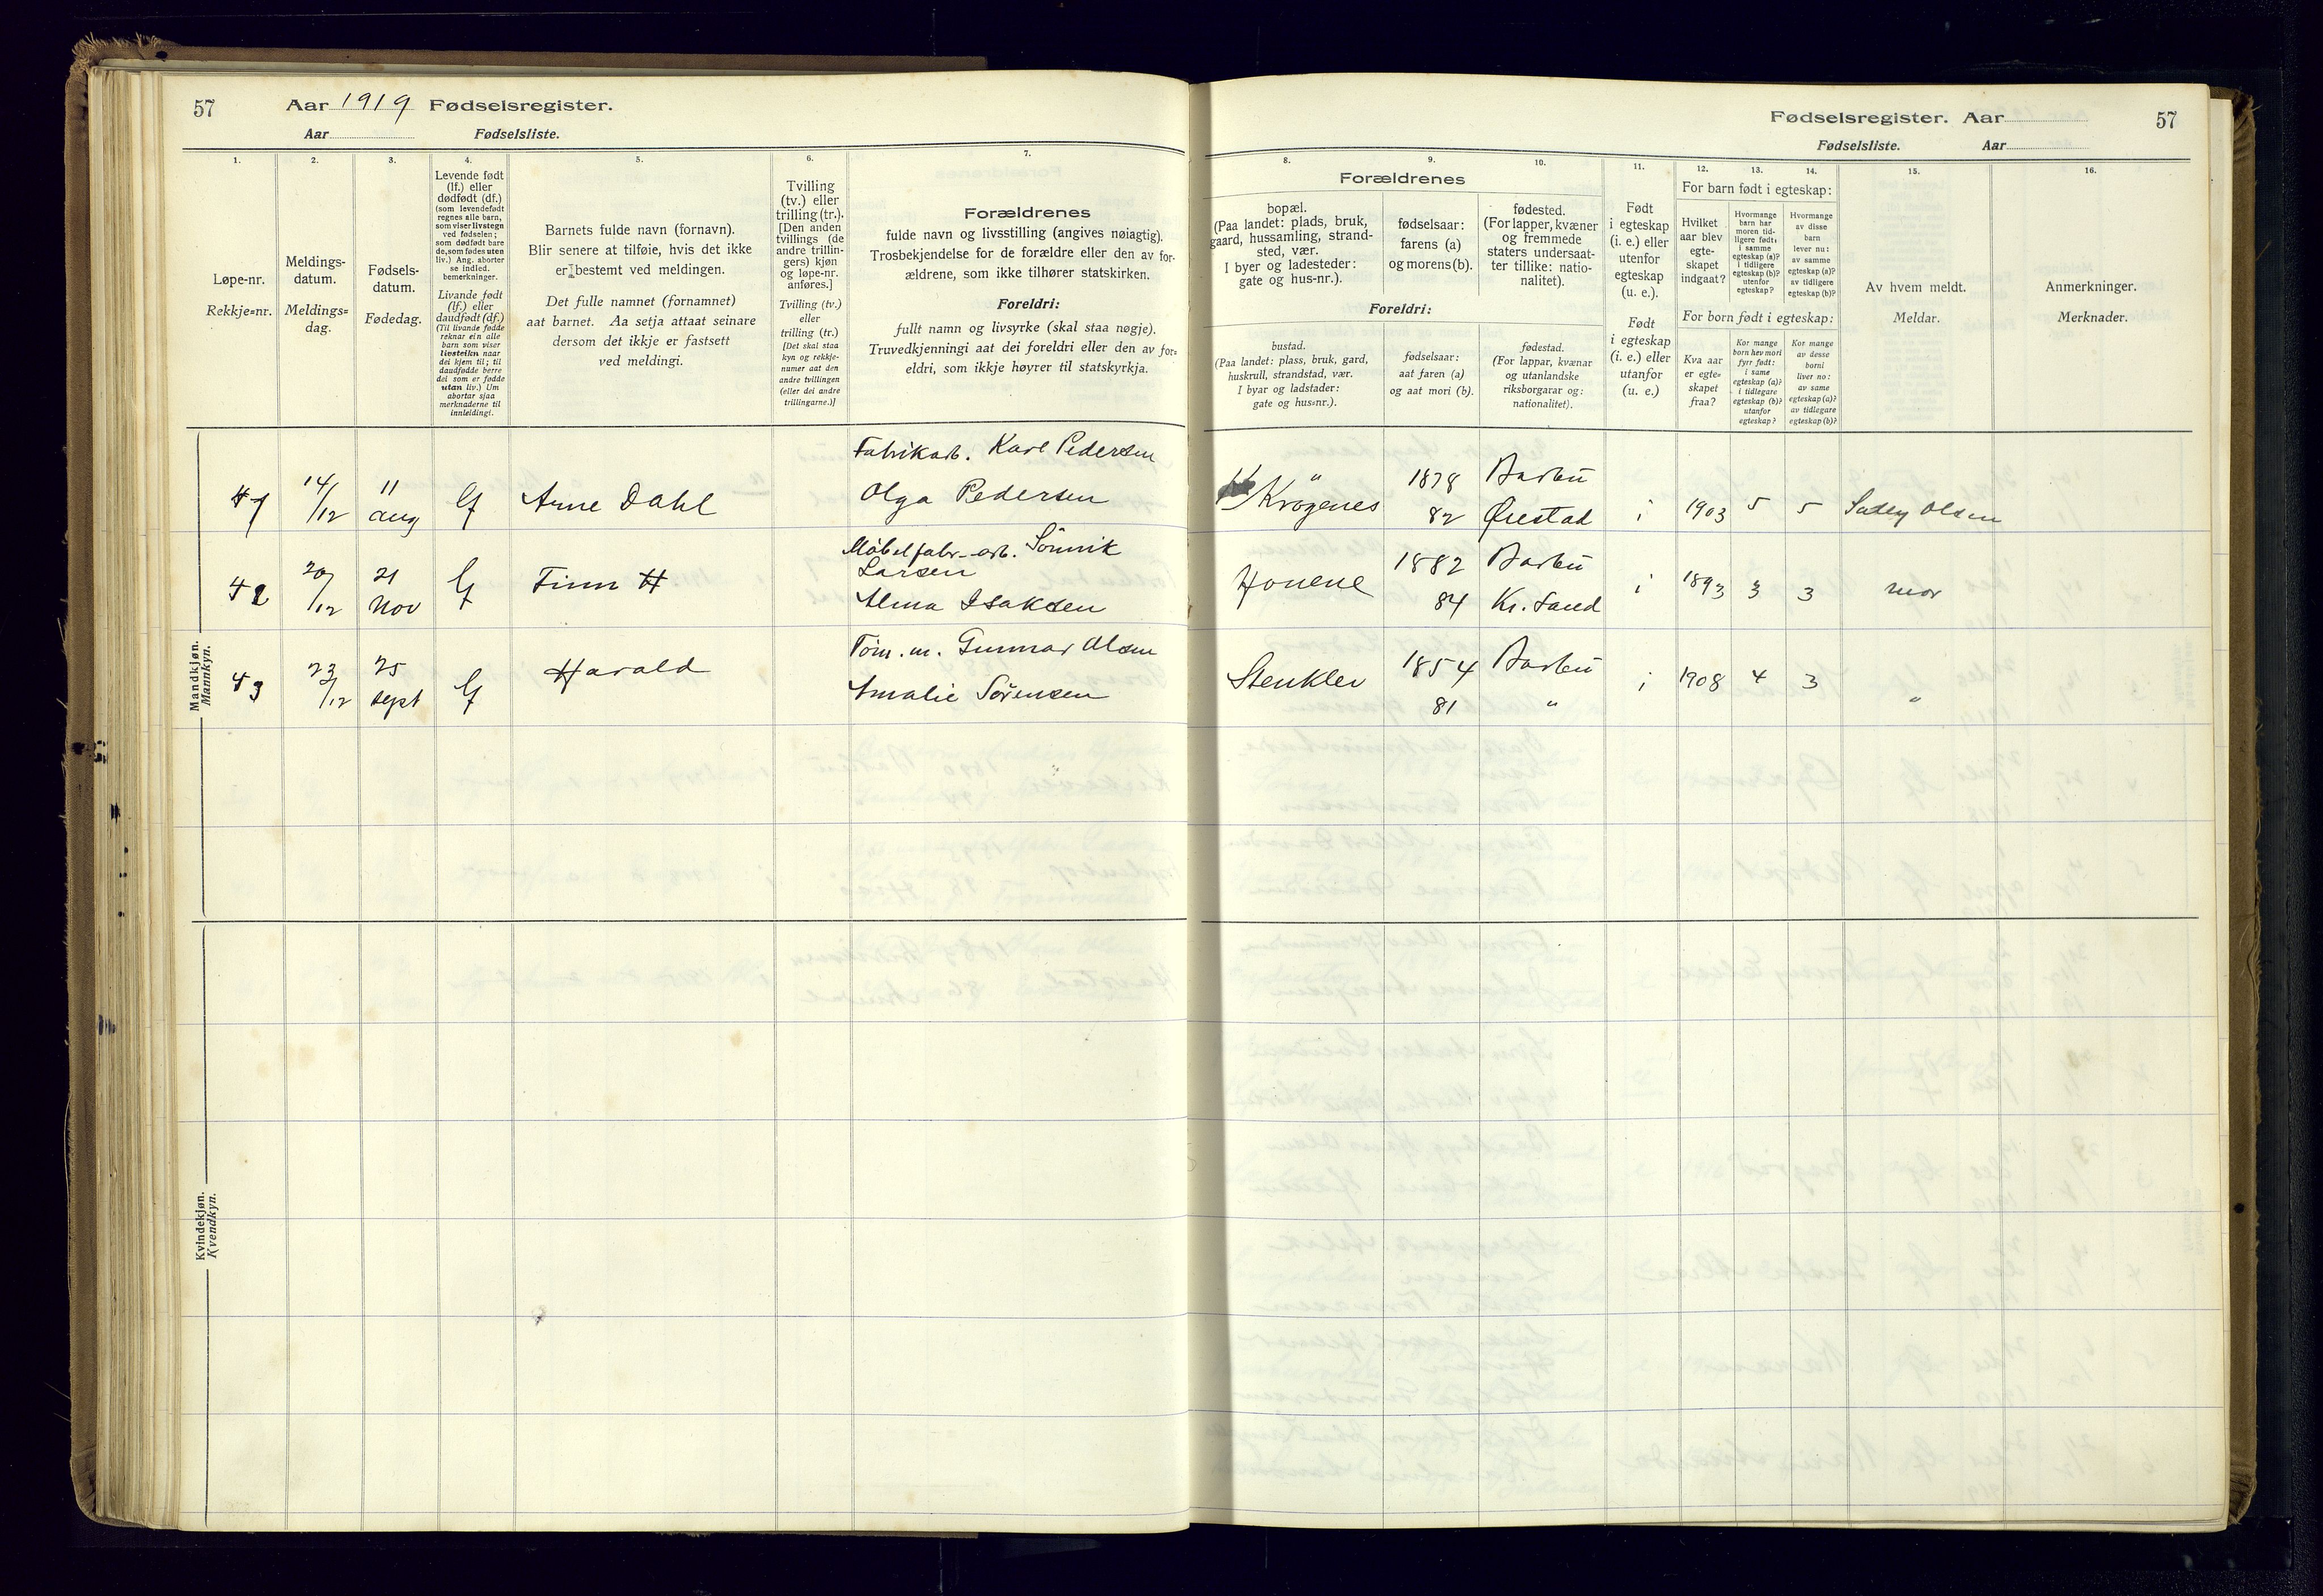 57 Aar 1919 Fødselsregister.
Aar Fødselsliste.
1. 2. 3. 4. 5. 6. 7.
Løpe-nr.
Rekkje=nr.
Meldings-
datum.
Meldings=
dag.
Fødsels-
datum.
Fødedag.
Levende født
(lf.) eller
dødfødt (df.)
(som levendefødt
regnes alle barn,
som viser livstegn
ved fødselen;
som dødfødt bare
de, som fødes uten
liv.) Ang. aborter
se indled.
bemerkninger.
Livande født
(lf.) eller
daudfødt (df.)
(Til livande fødde
reknar ein alle
barn som viser
livsteikn naar
dei kjem til; til
daudfødde berre
dei som er fødde
utan liv.) Um
abortar sjaa
merknaderne til
innleidingi.
Barnets fulde navn (fornavn).
Blir senere at tilføie, hvis det ikke
er bestemt ved meldingen.
Det fulle namnet (fornamnet)
aat barnet. Aa setja attaat seinare
dersom det ikkje er fastsett
ved meldingi.
Tvilling
(tv.) eller
trilling (tr.).
[Den anden
tvillings (de
andre trillin-
gers) kjøn
og løpe-nr.
anføres.]
Tvilling (tv.)
eller
trilling (tr.)
[Det skal staa
kyn og rekkje-
numer aat den
andre tvillingen
(eller dei andre
trillingarne.)]
Forældrenes
fulde navn og livsstilling (angives nøiagtig).
Trosbekjendelse for de forældre eller den av for-
ældrene, som ikke tilhører statskirken.
Foreldri:
fullt namn og livsyrke (skal staa nøgje).
Truvedkjenningi aat dei foreldri eller den av for=
eldri, som ikkje høyrer til statskyrkja.
Mandkjøn.
Mannkyn.
Fabrikarb. Karl Pedersen
14/12 11 aug lf Arne Dahl Olga Pedersen
Møbelfabr-arb. Sönnik
Larsen
42 20/12 21 Nov lf Finn H Alma Isaksen
Tøm. m. Gunnar Olsen
43 23/12 25 sept lf Harald Amalie Sørensen
Kvindekjøn.
Kvendkyn.
Fødselsregister. Aar 57
Fødselsliste. Aar
8. 9. 10. 11. 12. 13. 14. 15. 16.
Forældrenes
bopæl.
(Paa landet: plads, bruk,
gaard, hussamling, strand-
sted, vær.
I byer og ladesteder:
gate og hus-nr.).
fødselsaar:
farens (a)
og morens (b).
fødested.
(For lapper, kvæner
og fremmede
staters undersaat-
ter tillike: natio-
nalitet).
Foreldri:
bustad.
(Paa landet: plass, bruk, gard,
huskrull, strandstad, vær.
I byar og ladstader:
gate og hus=nr.).
fødselsaar:
aat faren (a)
og aat mori (b).
fødestad.
(For lappar, kvænar
og utanlandske
riksborgarar og:
nationalitet).
Født
i egteskap
(i. e.) eller
utenfor
egteskap
(u. e.).
Født
i egteskap
(i. e.) eller
utanfor
(u. e.)
For barn født i egteskap:
Hvilket
aar blev
egte-
skapet
indgaat?
Hvormange
barn har
moren tid-
ligere født:
i samme
egteskap (a)?
i tidligere
egteskap (b)?
utenfor
egteskap?
Hvormange
av disse
barn
lever nu:
av samme
egteskap (a)?
av tidligere
egteskap (b)?
For born født i egteskap:
Kva aar
er egte=
skapet
fraa?
Kor mange
born hev mori
fyrr født:
i same
egteskap (a)?
i tidlegare
egteskap (b)?
utanfor
egteskap?
Kor mange
av desse
borni
liver no:
av same
egteskap (a)?
av tidlegare
egteskap (b)?
Av hvem meldt.
Meldar.
Anmerkninger.
Merknader.
1878 Barbu
Krøgenes 82 Øiestad i 1903 5 5 Olsen
1882 Barbu
84 Kr. Sand i 1893 3 3 mor
Stenklev 1854 Barbu
81 " i 1908 4 3 "